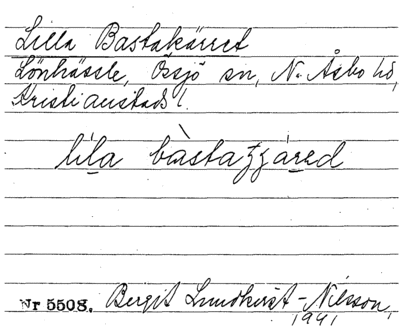 Lilla Bastakärret
Lönhässle, Össjö sn, N. Åsbo hd,
Kristianstads l.
lila bàsta
Nr 5508. Bergit Lundkvist-Nilsson,
1941